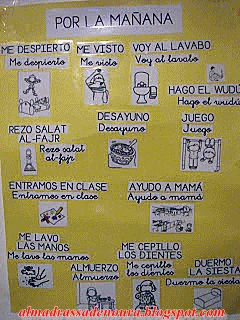 POR LA MAÑANA
ME DESPIERTO
Me despierto
ME VISTO
Me visto
VOY AL LAVABO
Voy al lavabo
HAGO EL WUDÚ
Hago el wudú
REZO SALAT
AL-FAJR
Rezo salat
al-fajr
DESAYUNO
Desayuno
JUEGO
Juego
ENTRAMOS EN CLASE
Entramos en clase
AYUDO A MAMÁ
Ayudo a mamá
ME LAVO
LAS MANOS
Me lavo las manos
ALMUERZO
Almuerzo
ME CEPILLO
LOS DIENTES
Me cepillo
los dientes
DUERMO
LA SIESTA
Duermo la siesta
almadrassadenoura.blogspot.com